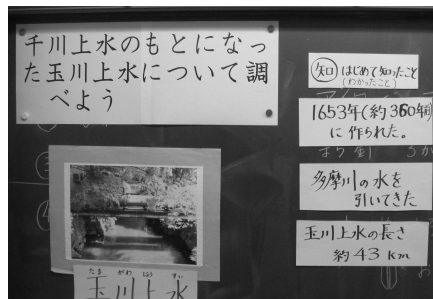 千川上水のもとになっ
た玉川上水について調
べよう
知 はじめて知ったこと
(わかったこと)
1653年(約360年前)
に作られた。
多摩川の水を
引いてきた
玉川上水の長さ
約43km
たま がわ じょう すい
玉川上水